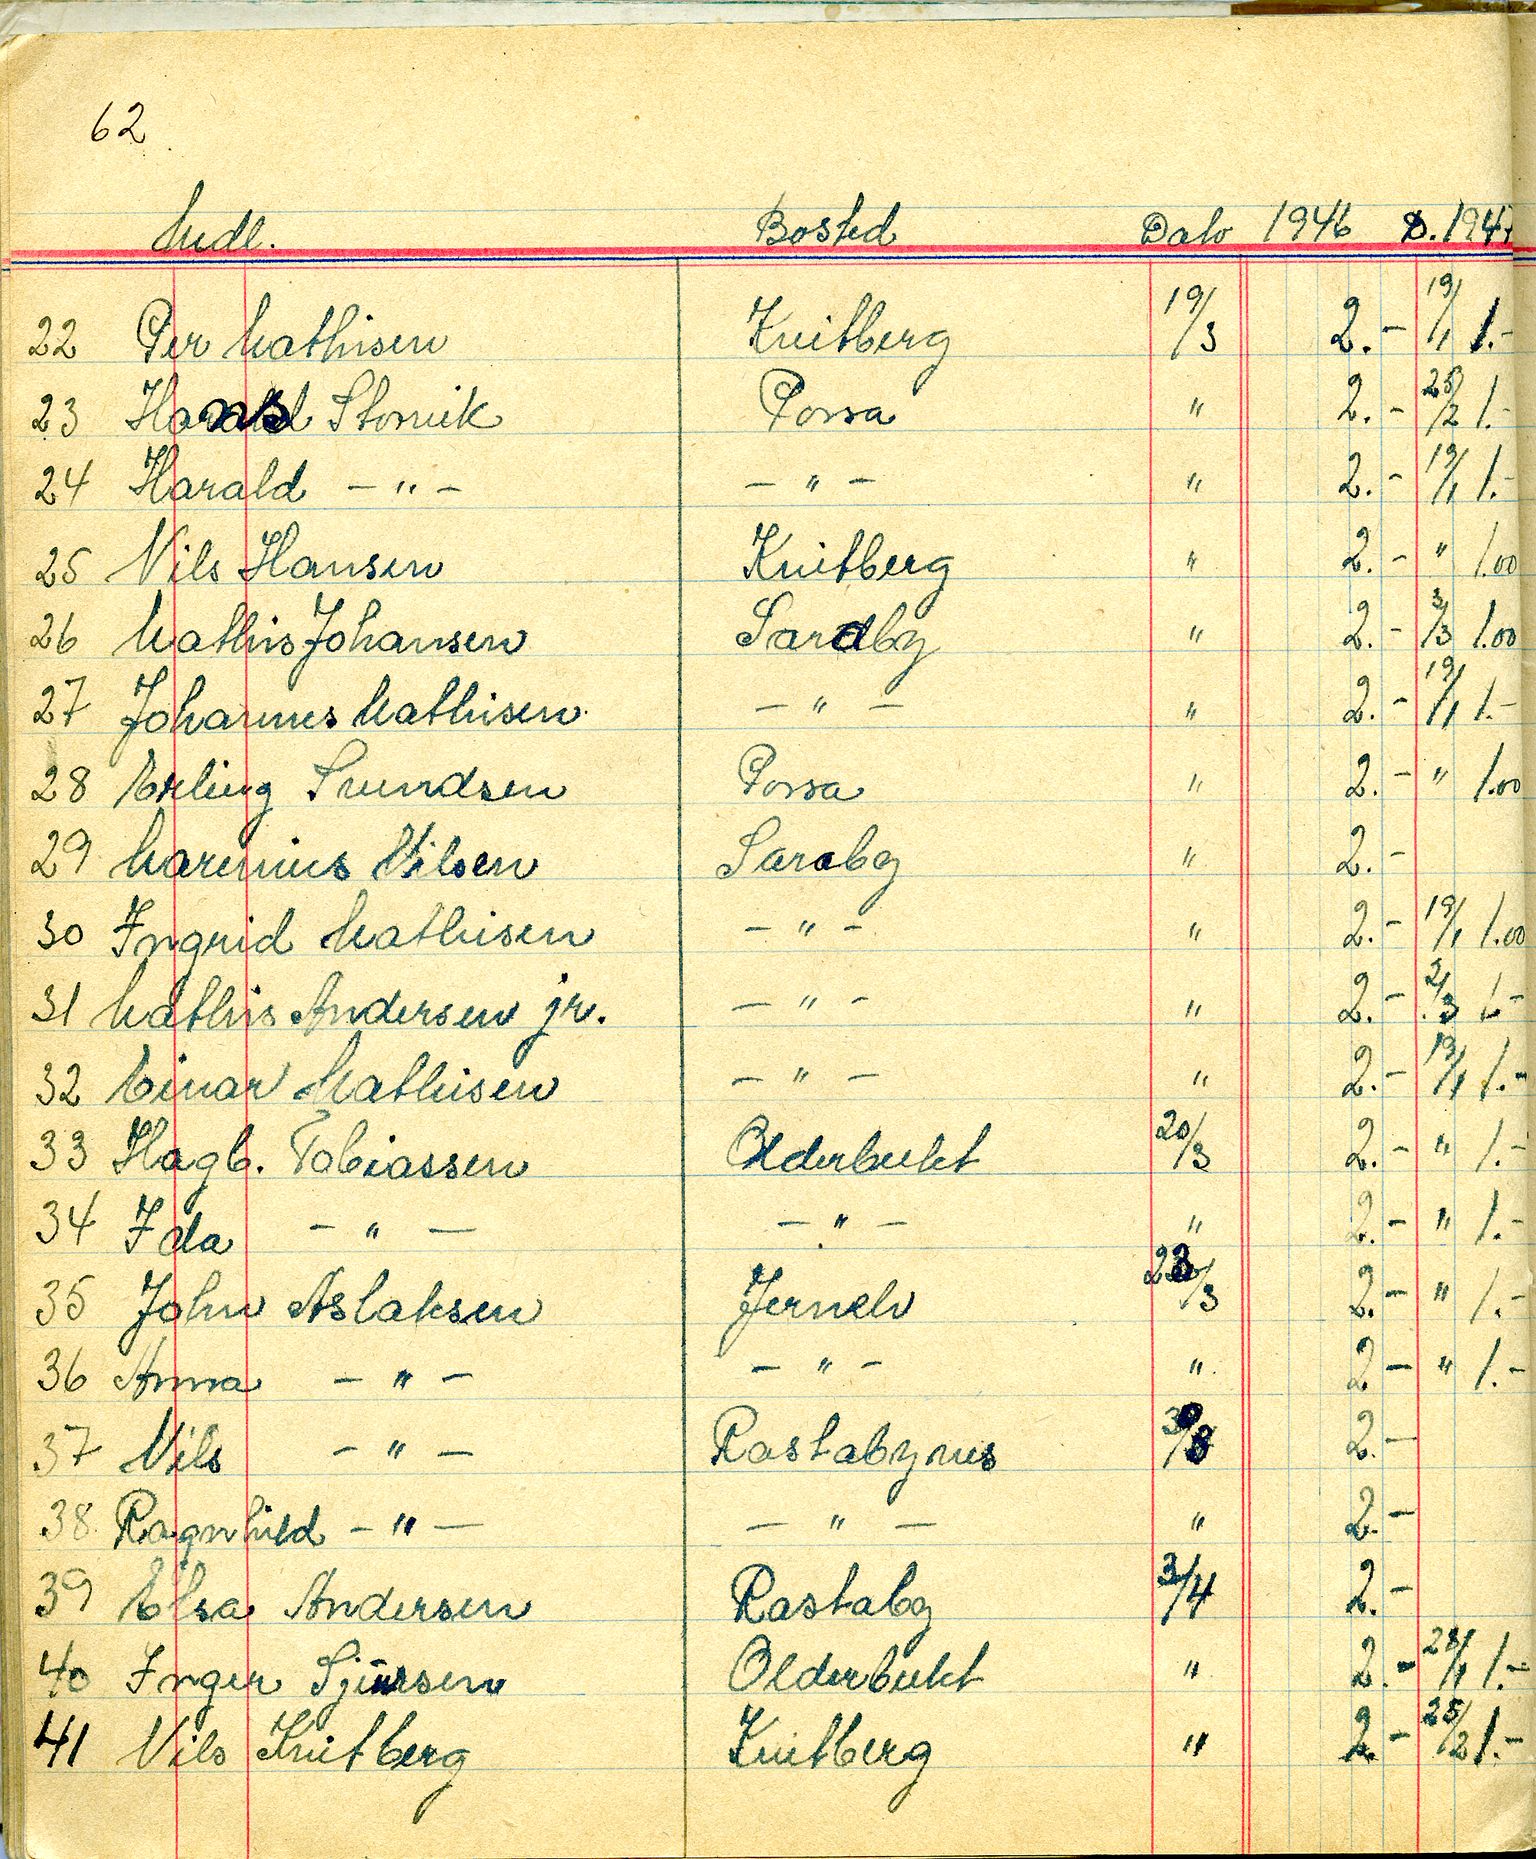 62
Medl. Bosted Dato 1946 D. 1947
22 Per Mathisen Kvitberg 19/3 2.- 19/1 1.-
23 Hans Storvik Porsa " 2.- 25/2 1.-
24 Harald - " - - " - " 2.- 19/1 1.-
25 Nils Hansen Kvitberg " 2.- " 1.00
26 Mathis Johansen Saraby " 2.- 3/3 1.00
27 Johannes Mathisen - " - " 2.- 19/1 1.-
28 Erling Svendsen Porsa " 2.- " 1.00
29 Marenius Nilsen Saraby " 2.-
30 Ingrid Mathisen - " - " 2.- 19/1 1.00
31 Mathis Andersen jr. - " - " 2.- 2/3 1.-
32 Einar Mathisen - " - " 2.- 19/1 1.-
33 Hagb. Tobiassen Olderbukt 20/3 2.- " 1.-
34 Ida - " - - " - " 2.- " 1.-
35 John Aslaksen Jernelv 23/3 2.- " 1.-
36 Anna - " - - " - " 2.- " 1.-
37 Nils - " - Rastabynes 30/3 2.-
38 Ragnhild - " - - " - " 2.-
39 Elsa Andersen Rastaby 3/4 2.-
40 Inger Sjursen Olderbukt " 2.- 1.-
41 Nils Kvitberg Kvitberg " 2.- 25/2 1.-